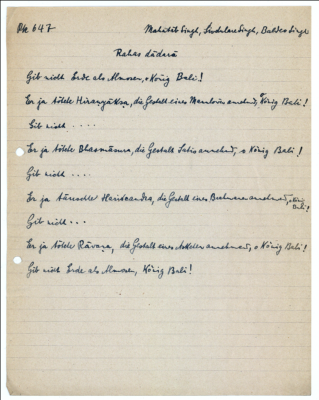 Ph 647
Mahátit Singh, Shedulare Singh, Baldeo Singh
Rahas dādarā
Gib nicht Erde als Almosen, o König Bali!
Er ja tötete Hiraṇyākṣa, die Gestalt eines annehmend, o König Bali!
Gib nicht . . . .
Er ja tötete Bhasmāsura, die Gestalt Satis annehmend, o König Bali!
Gib nicht . . . .
Er ja täuschte Hariścandra, die Gestalt eines Brahmanen annehmend, o König Bali!
Gib nicht . . .
Er ja tötete Rāvaṇa, die Gestalt eines Asketen annehmend, o König Bali!
Gib nicht Erde als Almosen, König Bali!